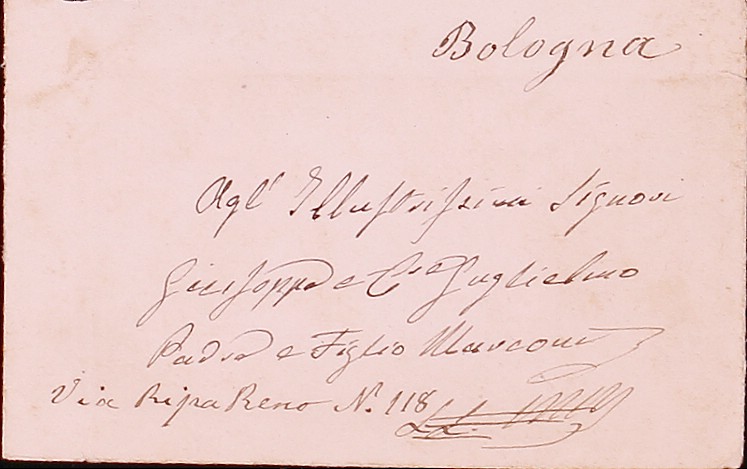 Bologna
Agl' Illustrissimi Signori
Giuseppe e Guglielmo
Padre e Figlio Marconi
Via Ripa Reno N. 118